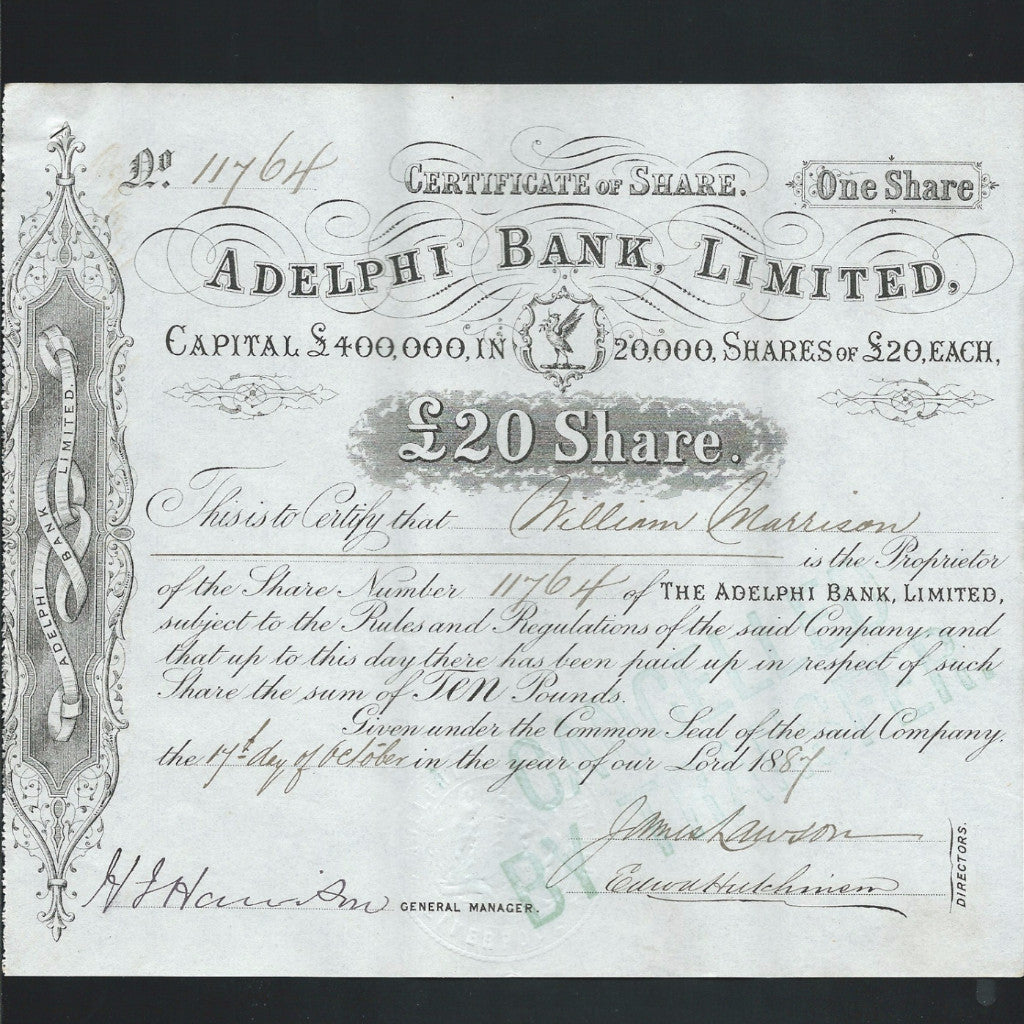 No. 11764
CERTIFICATE OF SHARE.
One Share
ADELPHI BANK, LIMITED,
CAPITAL £400,000, IN 20,000, SHARES OF £20, EACH,
£20 Share.
This is to Certify that William Marrison
is the Proprietor
of the Share Number 11764 of THE ADELPHI BANK, LIMITED,
subject to the Rules and Regulations of the said Company, and
that up to this day there has been paid up in respect of such
Share the sum of TEN Pounds.
Given under the Common Seal of the said Company.
the 17th day of October in the year of our Lord 1887
James Lawson
Edwd Hutchinson
DIRECTORS.
GENERAL MANAGER.
ADELPHI BANK LIMITED.
CANCELLED
BY TRANSFER